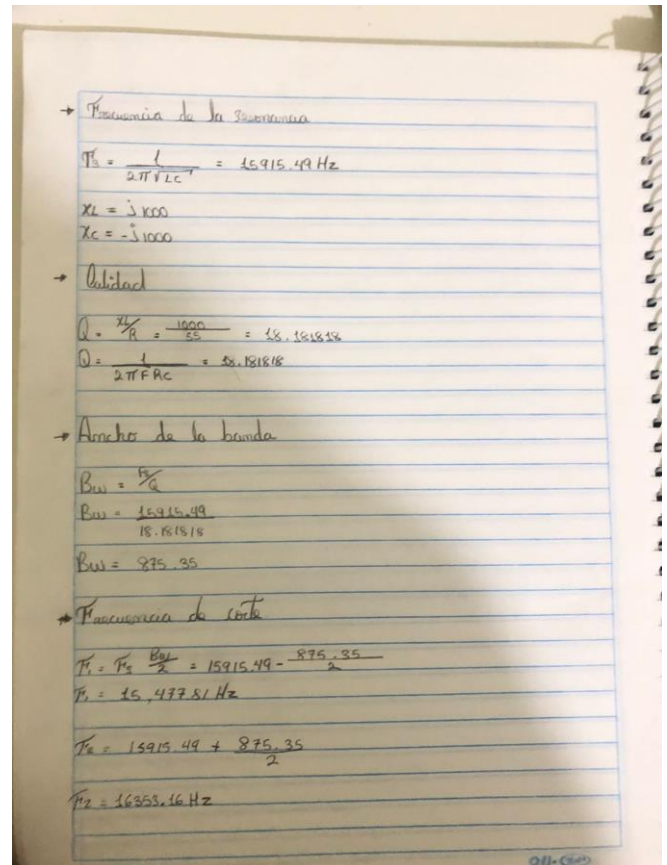 → Frecuencia de la resonancia
Fs = 1 / 2π√LC = 15915.49 Hz
XL = j1000
Xc = -j1000
→ Calidad
Q = XL/R = 1000/55 = 18.181818
Q = 1 / 2πFRC = 18.181818
→ Ancho de la banda
Bw = Fs/Q
Bw = 15915.49 / 18.181818
Bw = 875.35
→ Frecuencia de corte
F1 = Fs Bw/2 = 15915.49 - 875.35 / 2
F1 = 15,477.81 Hz
F2 = 15915.49 + 875.35 / 2
F2 = 16353.16 Hz